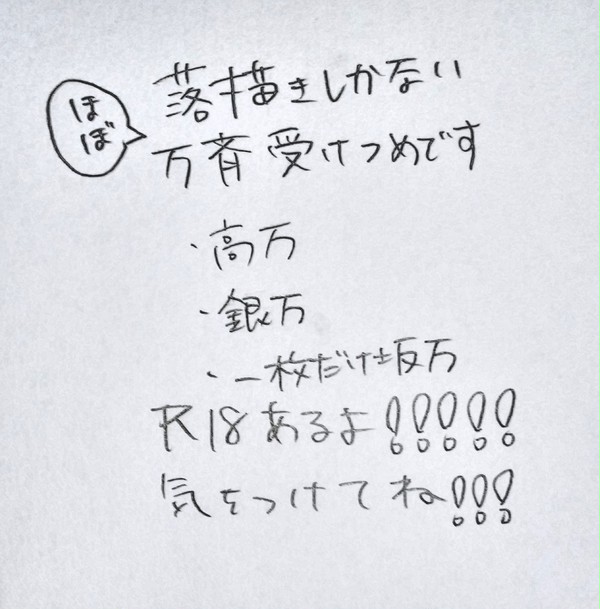 ほぼ
落描きしかない
万斉受けつめです
・高万
・銀万
・一枚だけ坂万
R18あるよ!!!!!
気をつけてね!!!